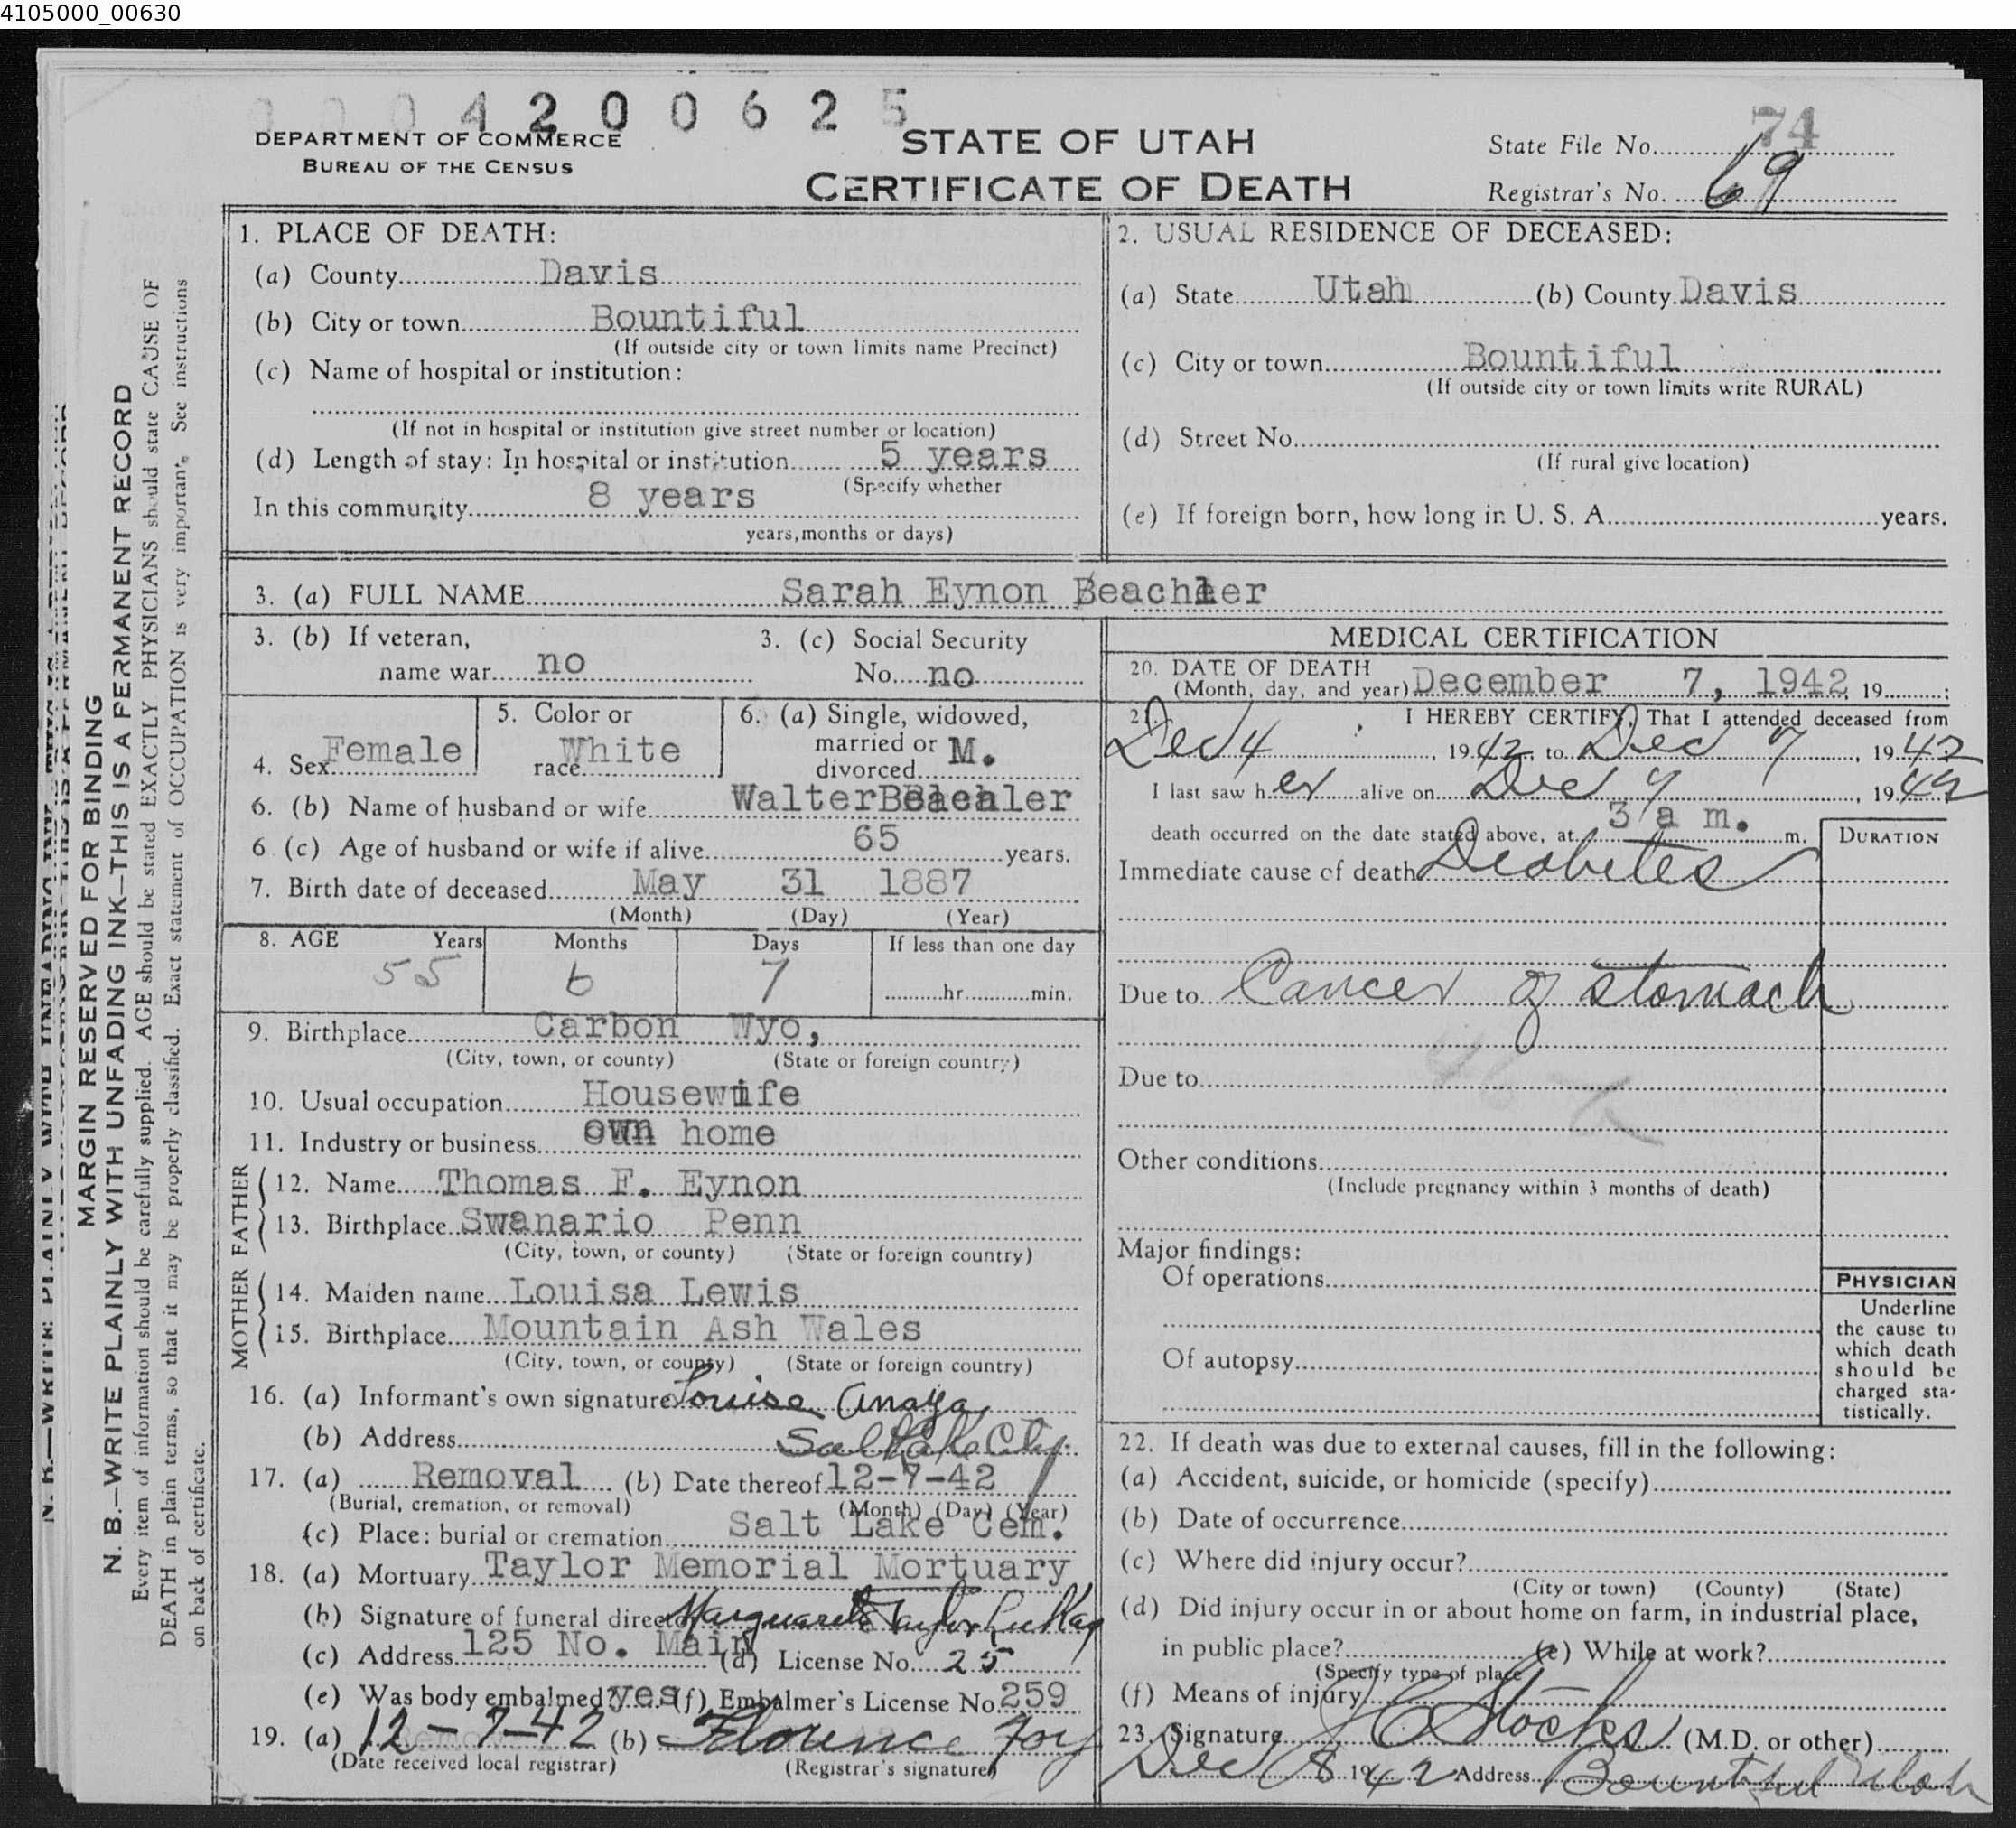 4105000_00630
0004200625
DEPARTMENT OF COMMERCE
BUREAU OF THE CENSUS
STATE OF UTAH
CERTIFICATE OF DEATH
State File No. 74
Registrar's No. 69
MARGIN RESERVED FOR BINDING
N. B.—WRITE PLAINLY WITH UNFADING INK—THIS IS A PERMANENT RECORD
Every item of information should be carefully supplied. AGE should be stated EXACTLY PHYSICIANS should state CAUSE OF
DEATH in plain terms, so that it may be properly classified. Exact statement of OCCUPATION is very important. See instructions
on back of certificate.
1. PLACE OF DEATH:
(a) County Davis
(b) City or town Bountiful
(If outside city or town limits name Precinct)
(c) Name of hospital or institution:
(If not in hospital or institution give street number or location)
(d) Length of stay: In hospital or institution 5 years
(Specify whether
In this community 8 years
years, months or days)
2. USUAL RESIDENCE OF DECEASED:
(a) State Utah (b) County Davis
(c) City or town Bountiful
(If outside city or town limits write RURAL)
(d) Street No.
(If rural give location)
(e) If foreign born, how long in U. S. A. years.
3. (a) FULL NAME Sarah Eynon Beachler
3. (b) If veteran,
name war no
3. (c) Social Security
No. no
4. Sex Female
5. Color or
race White
6. (a) Single, widowed,
married or
divorced M.
6. (b) Name of husband or wife Walter Beachler
6 (c) Age of husband or wife if alive 65 years.
7. Birth date of deceased May 31 1887
(Month) (Day) (Year)
8. AGE Years Months Days If less than one day
55 6 7 hr. min.
9. Birthplace Carbon Wyo,
(City, town, or county) (State or foreign country)
10. Usual occupation Housewife
11. Industry or business own home
FATHER
12. Name Thomas F. Eynon
13. Birthplace Swanario Penn
(City, town, or county) (State or foreign country)
MOTHER
14. Maiden name Louisa Lewis
15. Birthplace Mountain Ash Wales
(City, town, or county) (State or foreign country)
16. (a) Informant's own signature Louise Anaya
(b) Address Salt Lake City
17. (a) Removal (b) Date thereof 12-7-42
(Burial, cremation, or removal) (Month) (Day) (Year)
(c) Place: burial or cremation Salt Lake Cem.
18. (a) Mortuary Taylor Memorial Mortuary
(b) Signature of funeral director Taylor
(c) Address 125 No. Main (d) License No. 25
(e) Was body embalmed? yes (f) Embalmer's License No. 259
19. (a) 12-7-42 (b) Florence Foy
(Date received local registrar) (Registrar's signature)
MEDICAL CERTIFICATION
20. DATE OF DEATH
(Month, day, and year) December 7, 1942, 19 ;
21. I HEREBY CERTIFY, That I attended deceased from
Dec 4, 1942, to Dec 7, 1942
I last saw her alive on Dec 7, 1942
death occurred on the date stated above, at 3 a m. m.
DURATION
Immediate cause of death Diabetes
Due to Cancer of stomach
Due to
Other conditions
(Include pregnancy within 3 months of death)
Major findings:
Of operations
Of autopsy
PHYSICIAN
Underline
the cause to
which death
should be
charged sta-
tistically.
22. If death was due to external causes, fill in the following:
(a) Accident, suicide, or homicide (specify)
(b) Date of occurrence
(c) Where did injury occur?
(City or town) (County) (State)
(d) Did injury occur in or about home on farm, in industrial place,
in public place? (e) While at work?
(Specify type of place
(f) Means of injury
23. Signature Stocks (M.D. or other)
Dec 8 1942 Address Bountiful Utah